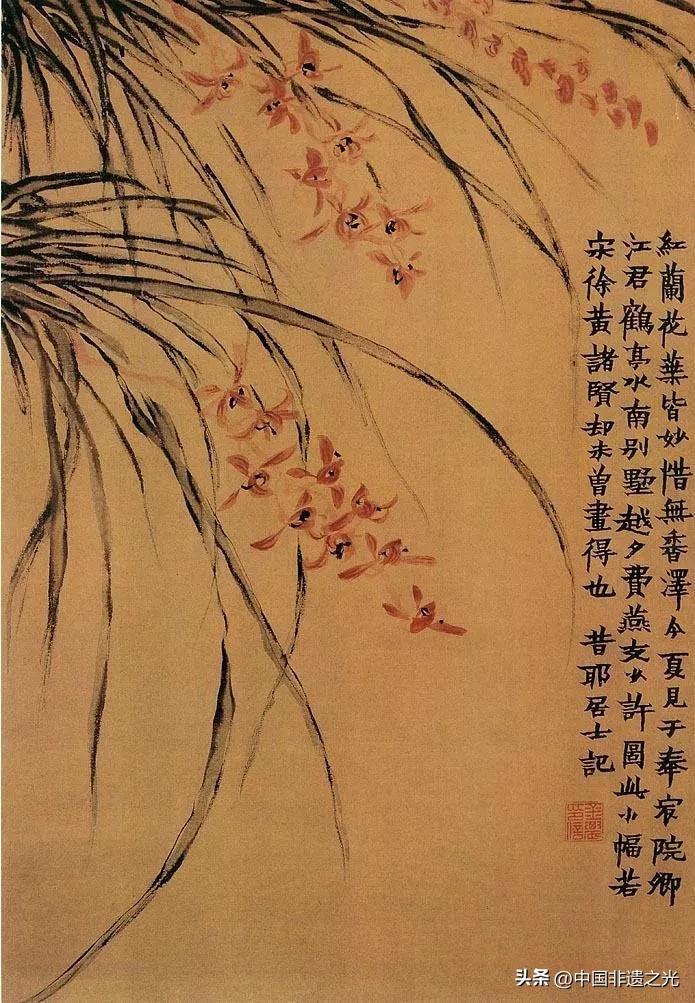 紅蘭花葉皆妙惜無香澤今夏見于奉宸院卿
江君鶴亭水南别墅越夕費燕支少許圖此小幅若
宋徐黃諸賢却未曾畫得也 昔耶居士記
金農印信
头条 @中国非遗之光